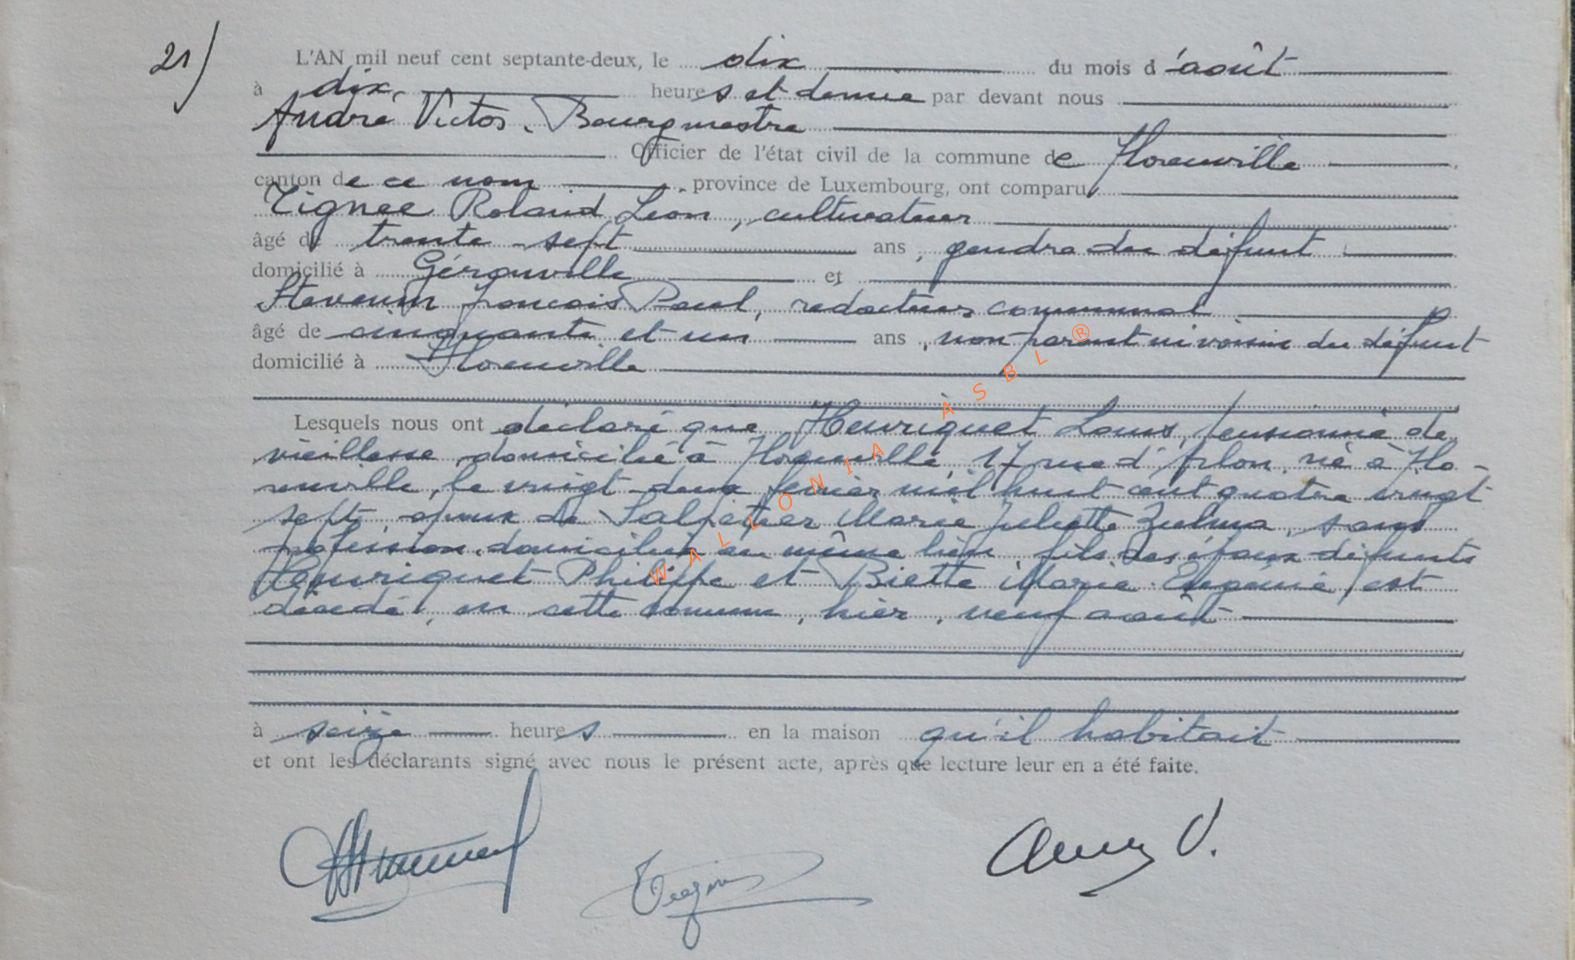 21)
L'AN mil neuf cent septante-deux, le dix du mois d'août
à dix heures et demie par devant nous
André Victor, Bourgmestre
Officier de l'état civil de la commune de Florenville
canton de ce nom province de Luxembourg, ont comparu
Tignée Roland Léon, cultivateur
âgé de trente-sept ans, gendre du défunt
domicilié à Gérouville et
Stevenin François Paul, rédacteur communal
âgé de cinquante et un ans, non parent ni voisin du défunt
domicilié à Florenville
Lesquels nous ont déclaré que Henriquet Louis, pensionné de
vieillesse, domicilié à Florenville, 17 rue d'Arlon, né à Flo-
renville, le vingt-deux février mil huit cent quatre vingt
sept, époux de Salpêtier Marie Juliette Zulma, sans
profession, domiciliée au même lieu, fils des époux défunts
Henriquet Philippe et Biette Marie Eugénie, est
décédé, en cette commune, hier, neuf août
à seize heures en la maison qu'il habitait
et ont les déclarants signé avec nous le présent acte, après que lecture leur en a été faite.
André V.
WALLONIA ASBL ®